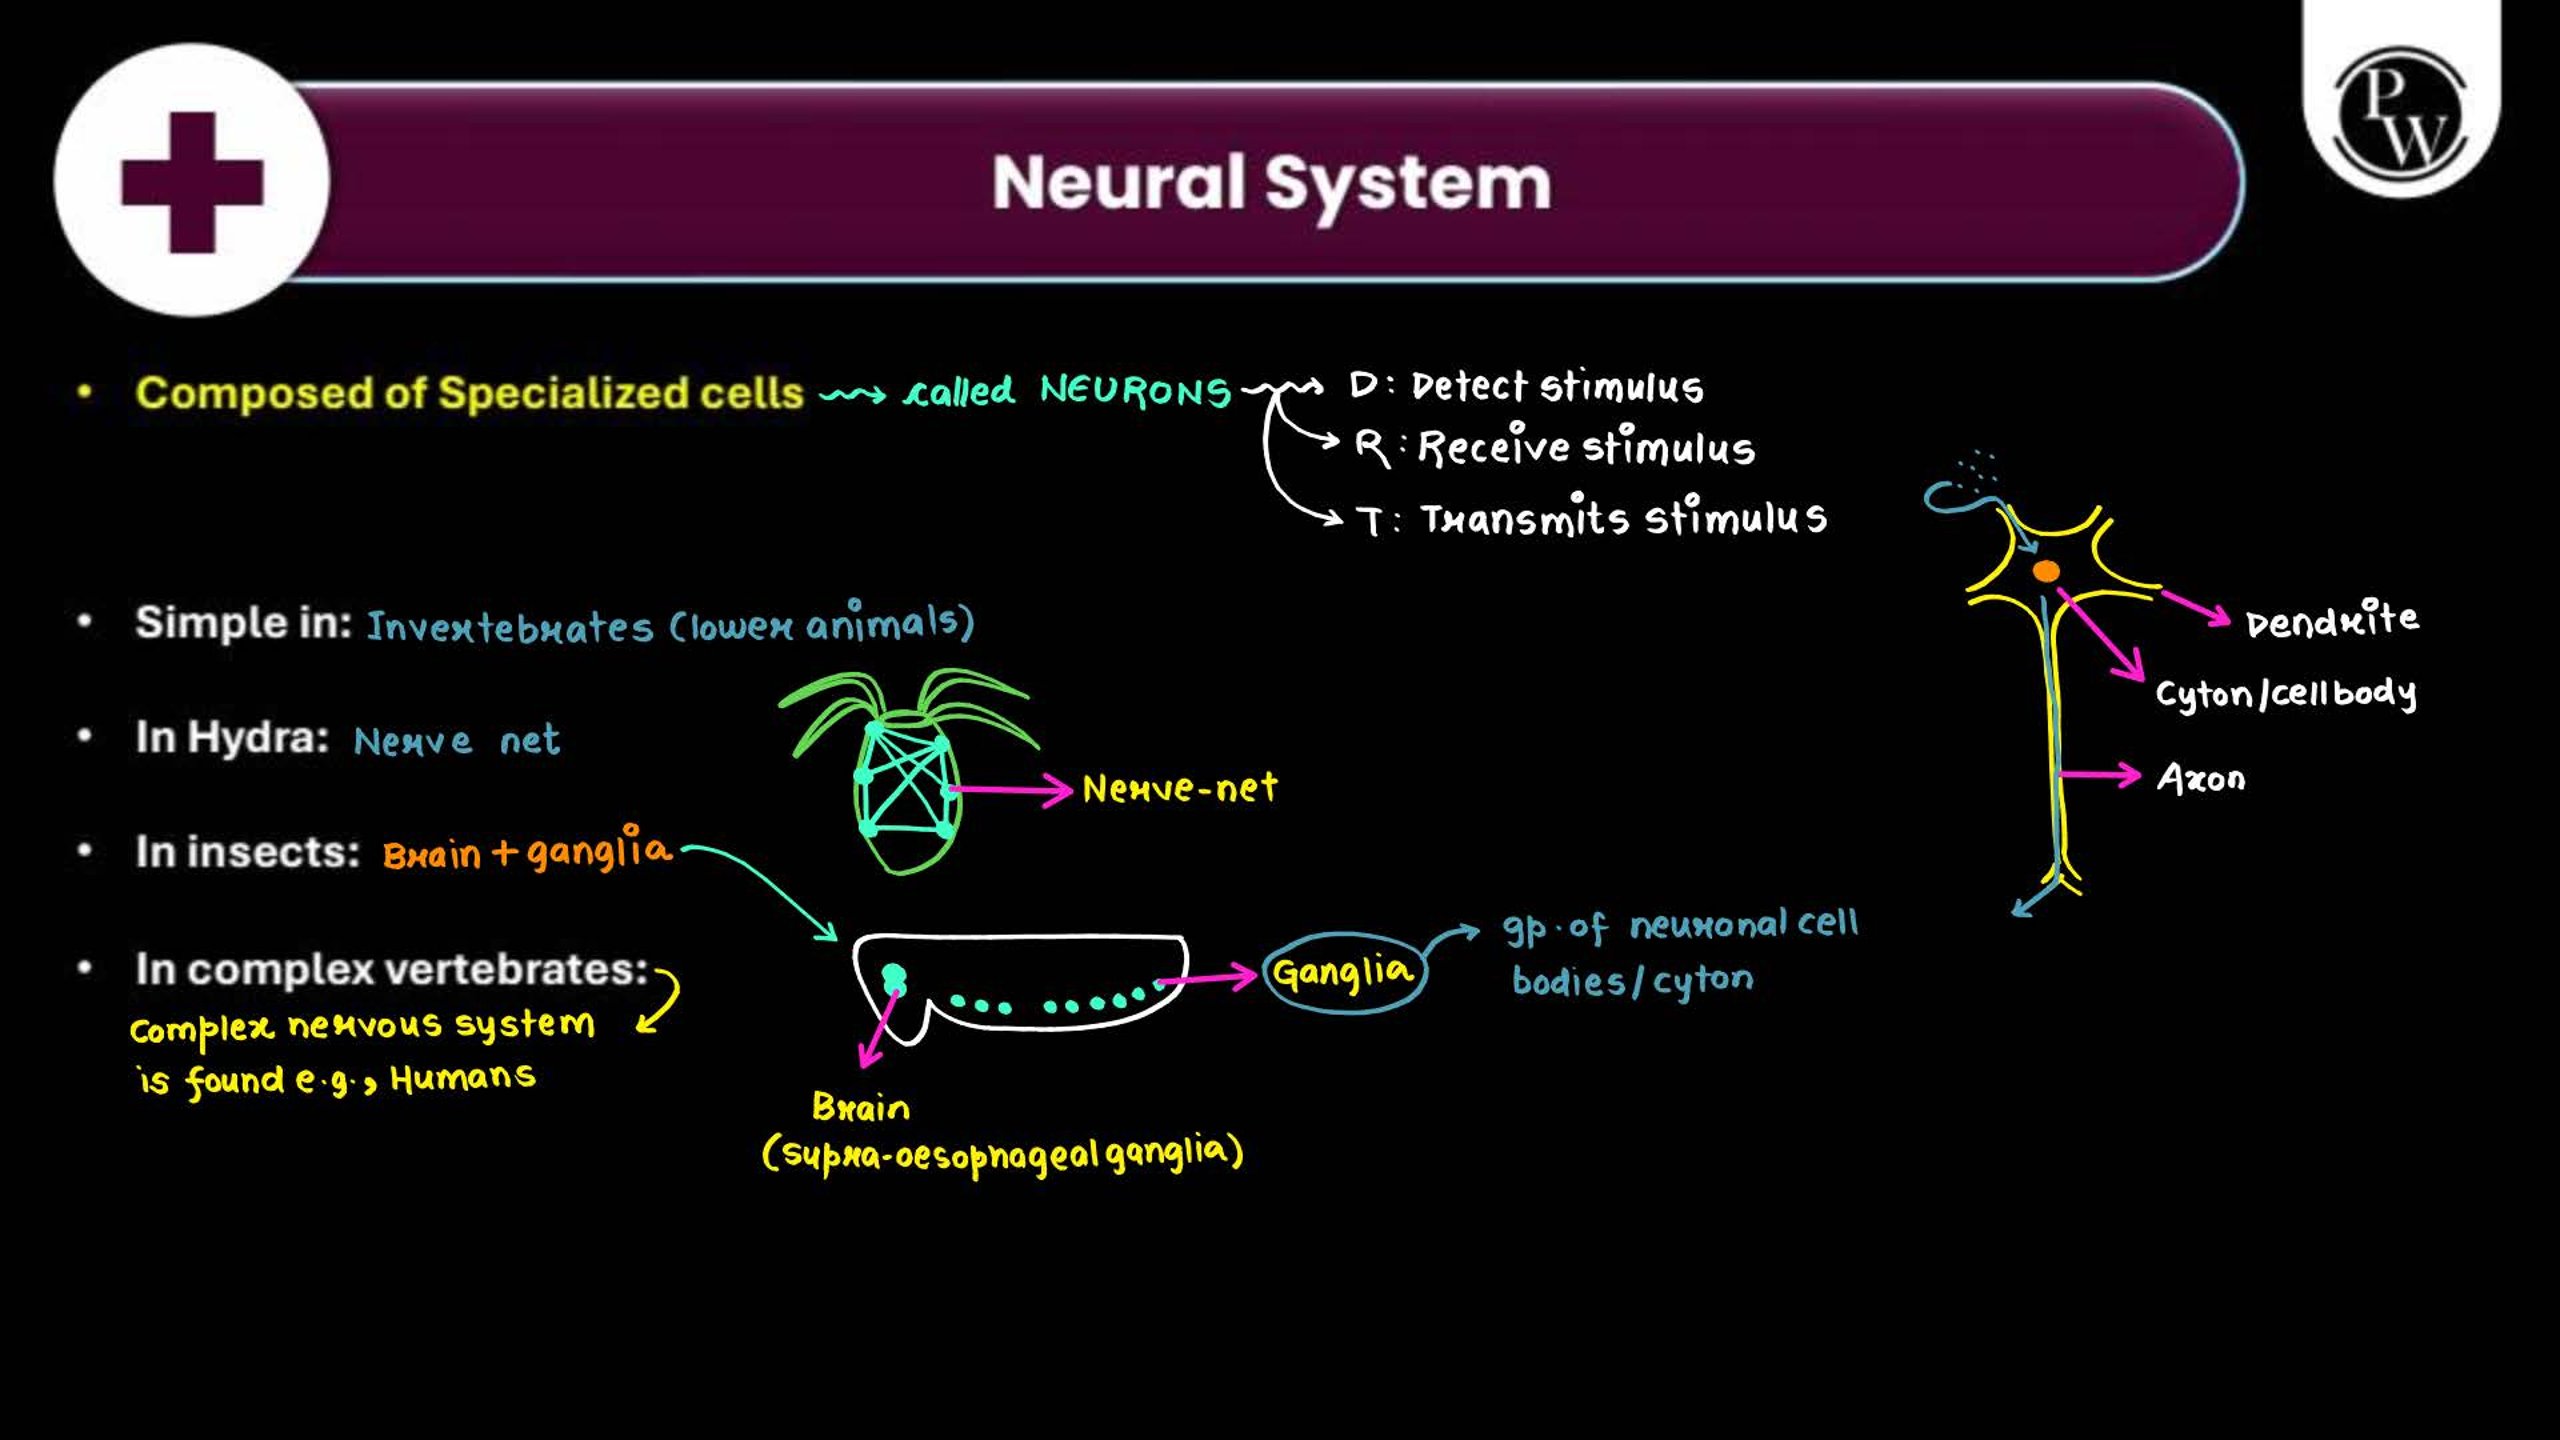 PW
Neural System
• Composed of Specialized cells → called NEURONS → D: Detect stimulus
→ R: Receive stimulus
→ T: Transmits stimulus
• Simple in: Invertebrates (lower animals)
Dendrite
Cyton/cell body
• In Hydra: Nerve net
Nerve-net
Axon
• In insects: Brain + ganglia
Ganglia → gp. of neuronal cell
bodies/cyton
• In complex vertebrates:
complex nervous system
is found e.g., Humans
Brain
(supra-oesophageal ganglia)